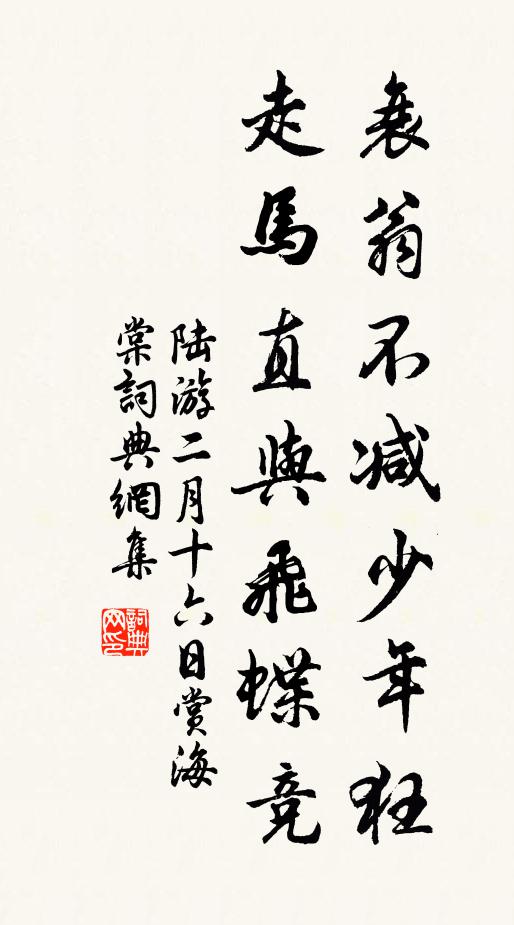 衰翁不减少年狂
走馬直與飛蝶竞
陆游二月十六日赏海
棠詞典網集
詞典网印